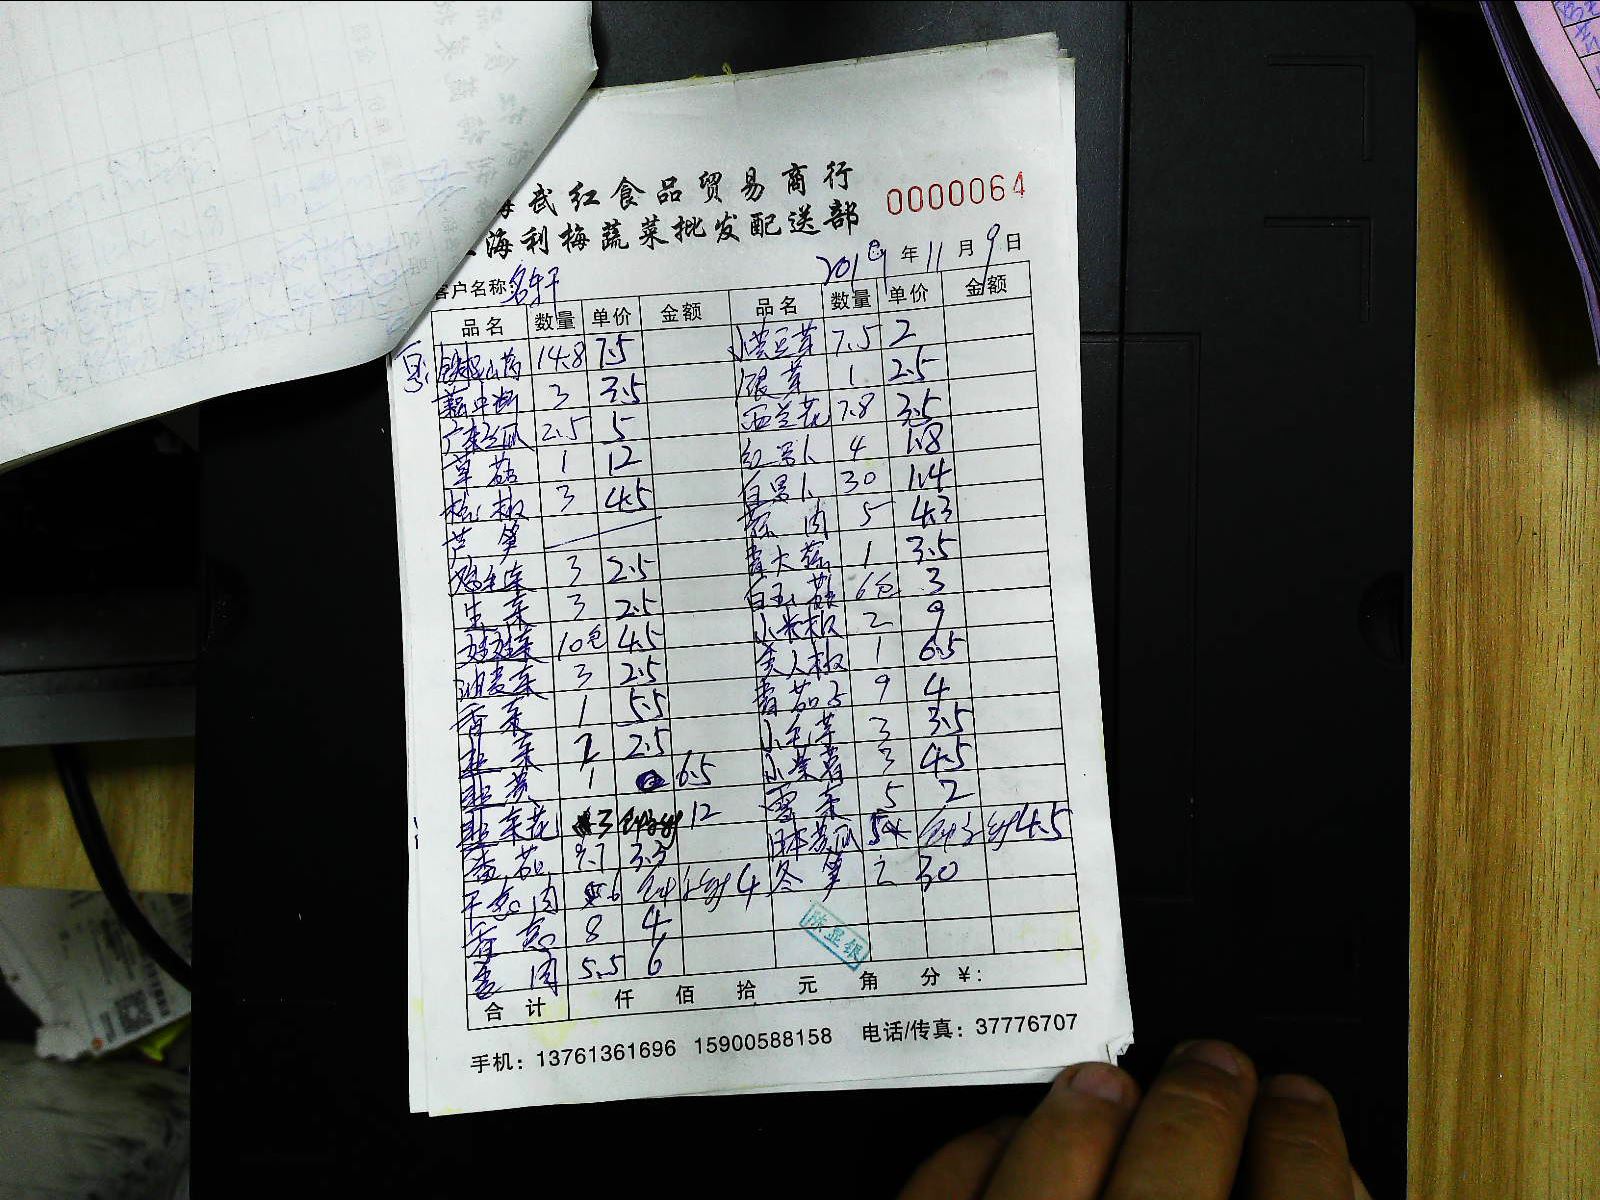 海武红食品贸易商行
海利梅蔬菜批发配送部
0000064
客户名称: 名轩 2019年11月9日
品名 数量 单价 金额 品名 数量 单价 金额
铁棍山药 14.8 7.5 小黄豆芽 7.5 2
藕中断 3 3.5 银芽 1 2.5
广东丝瓜 2.5 5 西兰花 7.8 3.5
草菇 1 12 红萝卜 4 1.8
杭椒 3 4.5 白萝卜 30 1.4
芦笋 蒜肉 5 4.3
鸡毛菜 3 2.5 青大蒜 1 3.5
生菜 3 2.5 白玉菇 6包 3
娃娃菜 10包 4.5 小米椒 2 9
油麦菜 3 2.5 美人椒 1 6.5
香菜 1 5.5 青茄子 9 4
韭菜 2 2.5 小毛芋 3 3.5
韭黄 1 6.5 小紫薯 3 4.5
韭菜花 3 12 雪菜 5 2
番茄 9.7 3.3 日本黄瓜 4.5
干葱肉 6 4 冬笋 2 30
香葱 8 4
姜肉 5.5 6
陈显银
合计 仟 佰 拾 元 角 分 ¥:
手机: 13761361696 15900588158 电话/传真: 37776707